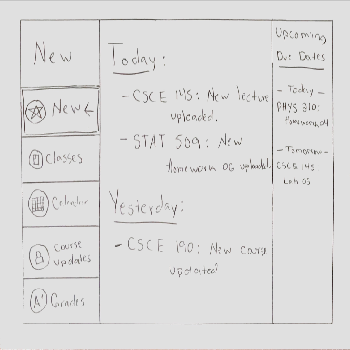 New
New ←
Classes
Calendar
Course
Updates
A+ Grades
Today:
- CSCE 145: New lecture
uploaded.
- STAT 509: New
Homework 06 uploaded.
Yesterday:
- CSCE 190: New course
updated
Upcoming
Due Dates
- Today -
PHYS 210:
Homework 04
- Tomorrow -
CSCE 145
Lab 05